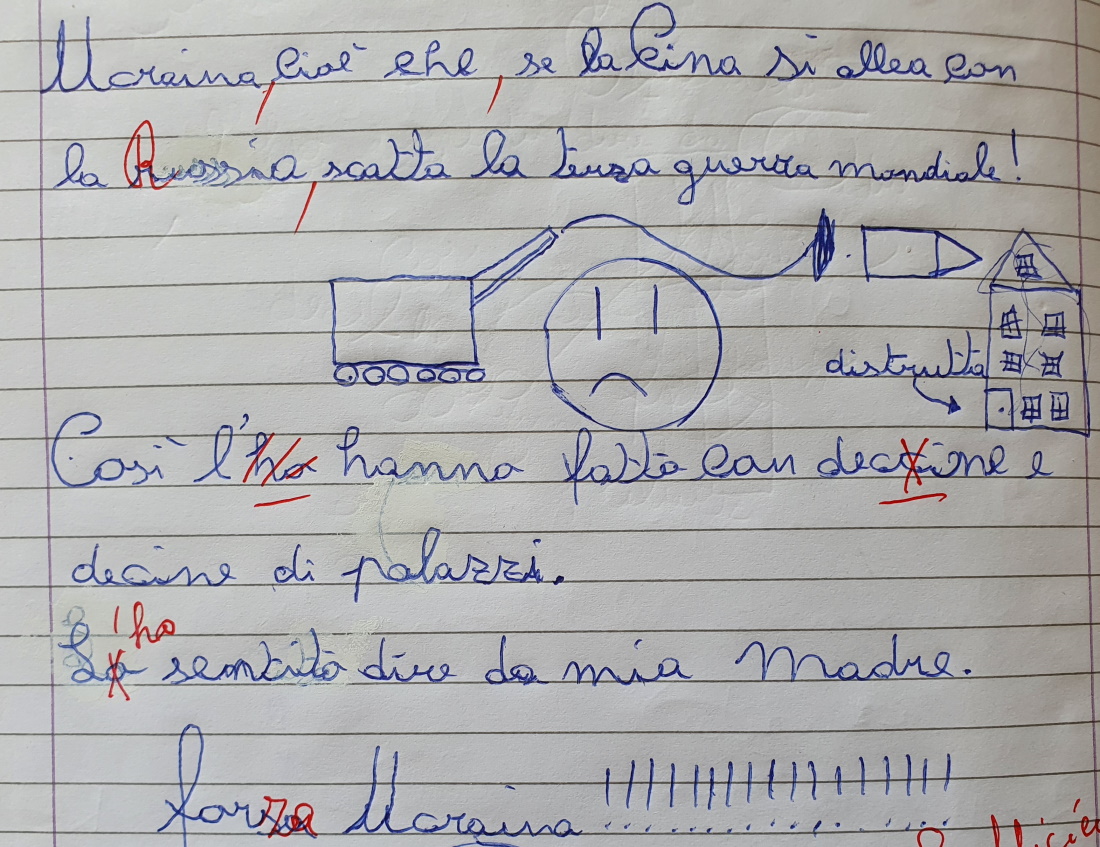 Ucraina, cioè che, se la Cina si allea con
la Russia, scatta la terza guerra mondiale!
distrutta
Così l'ha hanno fatto con decine e
decine di palazzi.
L'ho sentito dire da mia Madre.
forza Ucraina !!!!!!!!!!!!!!!!!!!!